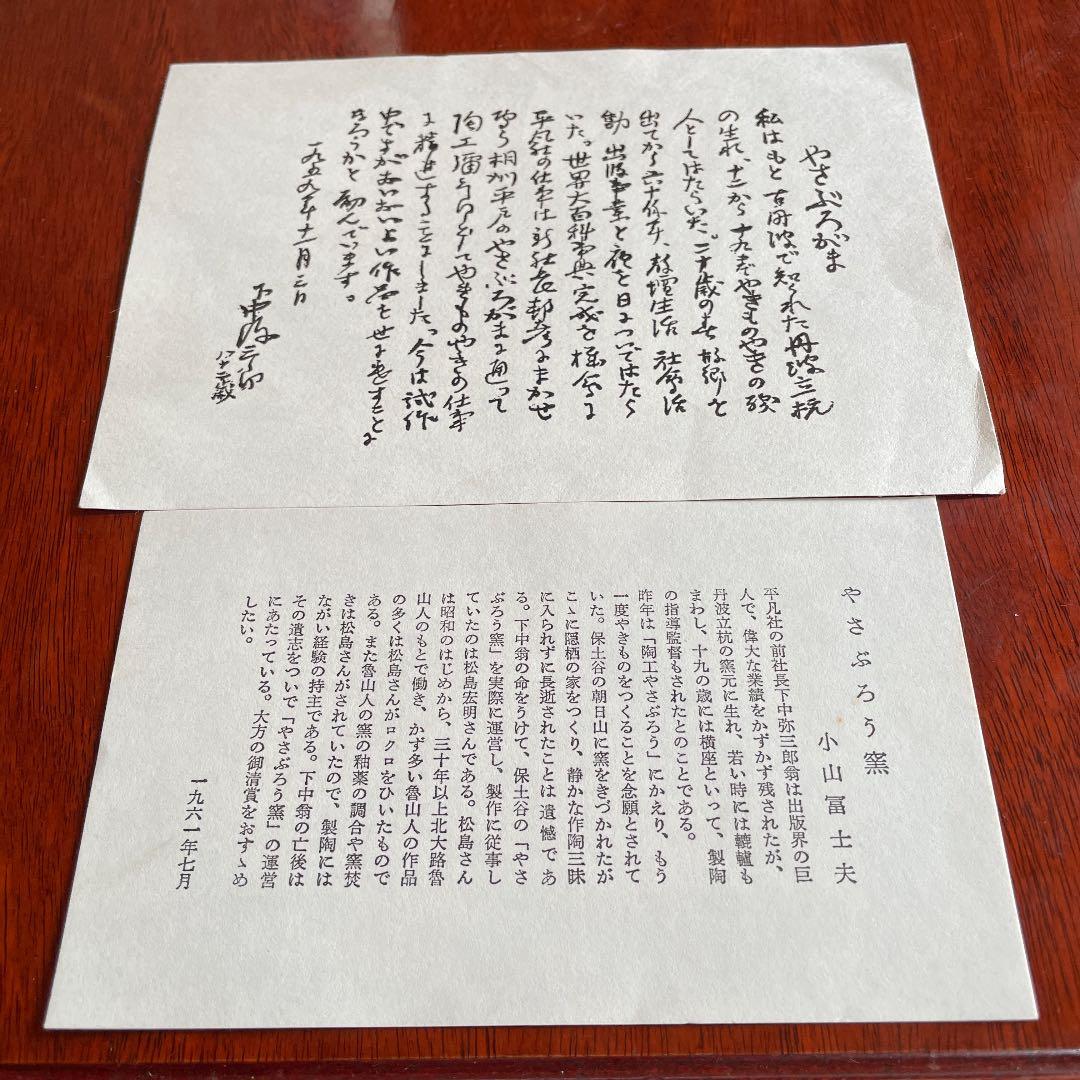 やさぶろがま
私はもと古丹波で知られた丹波立杭
の生れ、十二から十九まで やきものやきの職
人としてはたらいた。二十歳の春 故郷を
出てから六十餘年、教壇生活 社会活
動 出版事業と夜を日についではたら
いた。世界大百科事典完成を機会に
平凡社の仕事は新社長邦彦にまかせ
やさぶろがまに通って
陶工 としてやきものやきの仕事
に精進することにしました。今は試作
中ですがおいおいよい作品を世に出すことに
なろうかと励んでいます。
一九五九年十一月三日
下中弥三郎
八十二歳
やさぶろう窯
小山冨士夫
平凡社の前社長下中弥三郎翁は出版界の巨
人で、偉大な業績をかずかず残されたが、
丹波立杭の窯元に生れ、若い時には轆轤も
まわし、十九の歳には横座といって、製陶
の指導監督もされたとのことである。
昨年は「陶工やさぶろう」にかえり、もう
一度やきものをつくることを念願とされて
いた。保土谷の朝日山に窯をきづかれたが
こゝに隠栖の家をつくり、静かな作陶三昧
に入られずに長逝されたことは遺憾であ
る。下中翁の命をうけて、保土谷の「やさ
ぶろう窯」を実際に運営し、製作に従事し
ていたのは松島宏明さんである。松島さん
は昭和のはじめから、三十年以上北大路魯
山人のもとで働き、かず多い魯山人の作品
の多くは松島さんがロクロをひいたもので
ある。また魯山人の窯の釉薬の調合や窯焚
きは松島さんがされていたので、製陶には
ながい経験の持主である。下中翁の亡後は
その遺志をついで「やさぶろう窯」の運営
にあたっている。大方の御清賞をおすゝめ
したい。
一九六一年七月